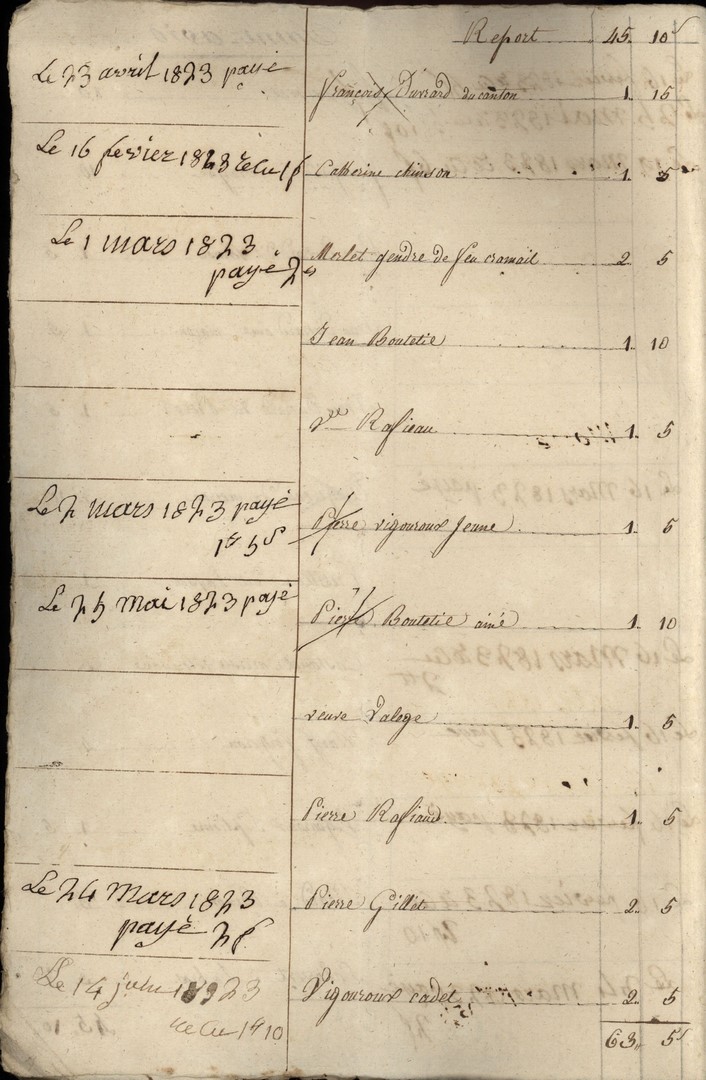 Report 45. 10s
Le 23 avril 1823 payé
françois Duvrard du canton 1. 15
Le 16 fevrier 1823 reçu 1f
Catherine chinson 1. 5
Le 1 mars 1823
payé 2
Morlet gendre de feu cramail 2 5
Jean Boutetie 1. 10
Vee Rafieau 1. 5
Le 2 mars 1823 payé
1f 5s
Pierre vigouroux Jeune 1 5
Le 25 mai 1823 payé
Pierre Boutetie ainé 1. 10
veuve Valege 1. 5
Pierre Rafiaud 1. 5
Le 24 Mars 1823
payé 2f
Pierre Gillet 2. 5
Le 14 juin 1823
reçu 1f 10
Vigouroux cadet 2. 5
63. 5s